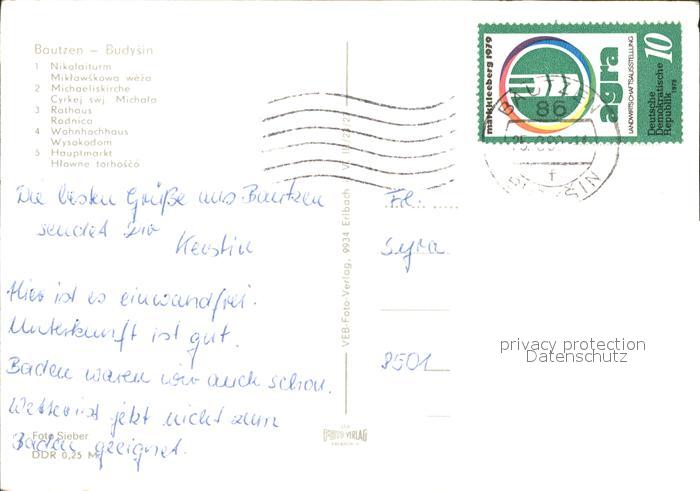 Bautzen – Budyšin
1 Nikolaiturm
Mikławškowa wěža
2 Michaeliskirche
Cyrkej swj. Michała
3 Rathaus
Radnica
4 Wohnhochhaus
Wysokodom
5 Hauptmarkt
Hłowne torhošćo
Die besten Grüße aus Bautzen
sendet Dir
Kerstin
Hier ist es einwandfrei.
Unterkunft ist gut.
Baden waren wir auch schon.
Wetter ist jetzt nicht zum
Baden geeignet.
Foto Sieber
DDR 0,25 M
VEB-Foto-Verlag, 9934 Erlbach
FOTO-VERLAG
ERLBACH
markkleeberg 1979
agra
LANDWIRTSCHAFTSAUSSTELLUNG
10
Deutsche
Demokratische
Republik 1979
BAUTZEN
86
f
Frl.
Syra
8501
privacy protection
Datenschutz